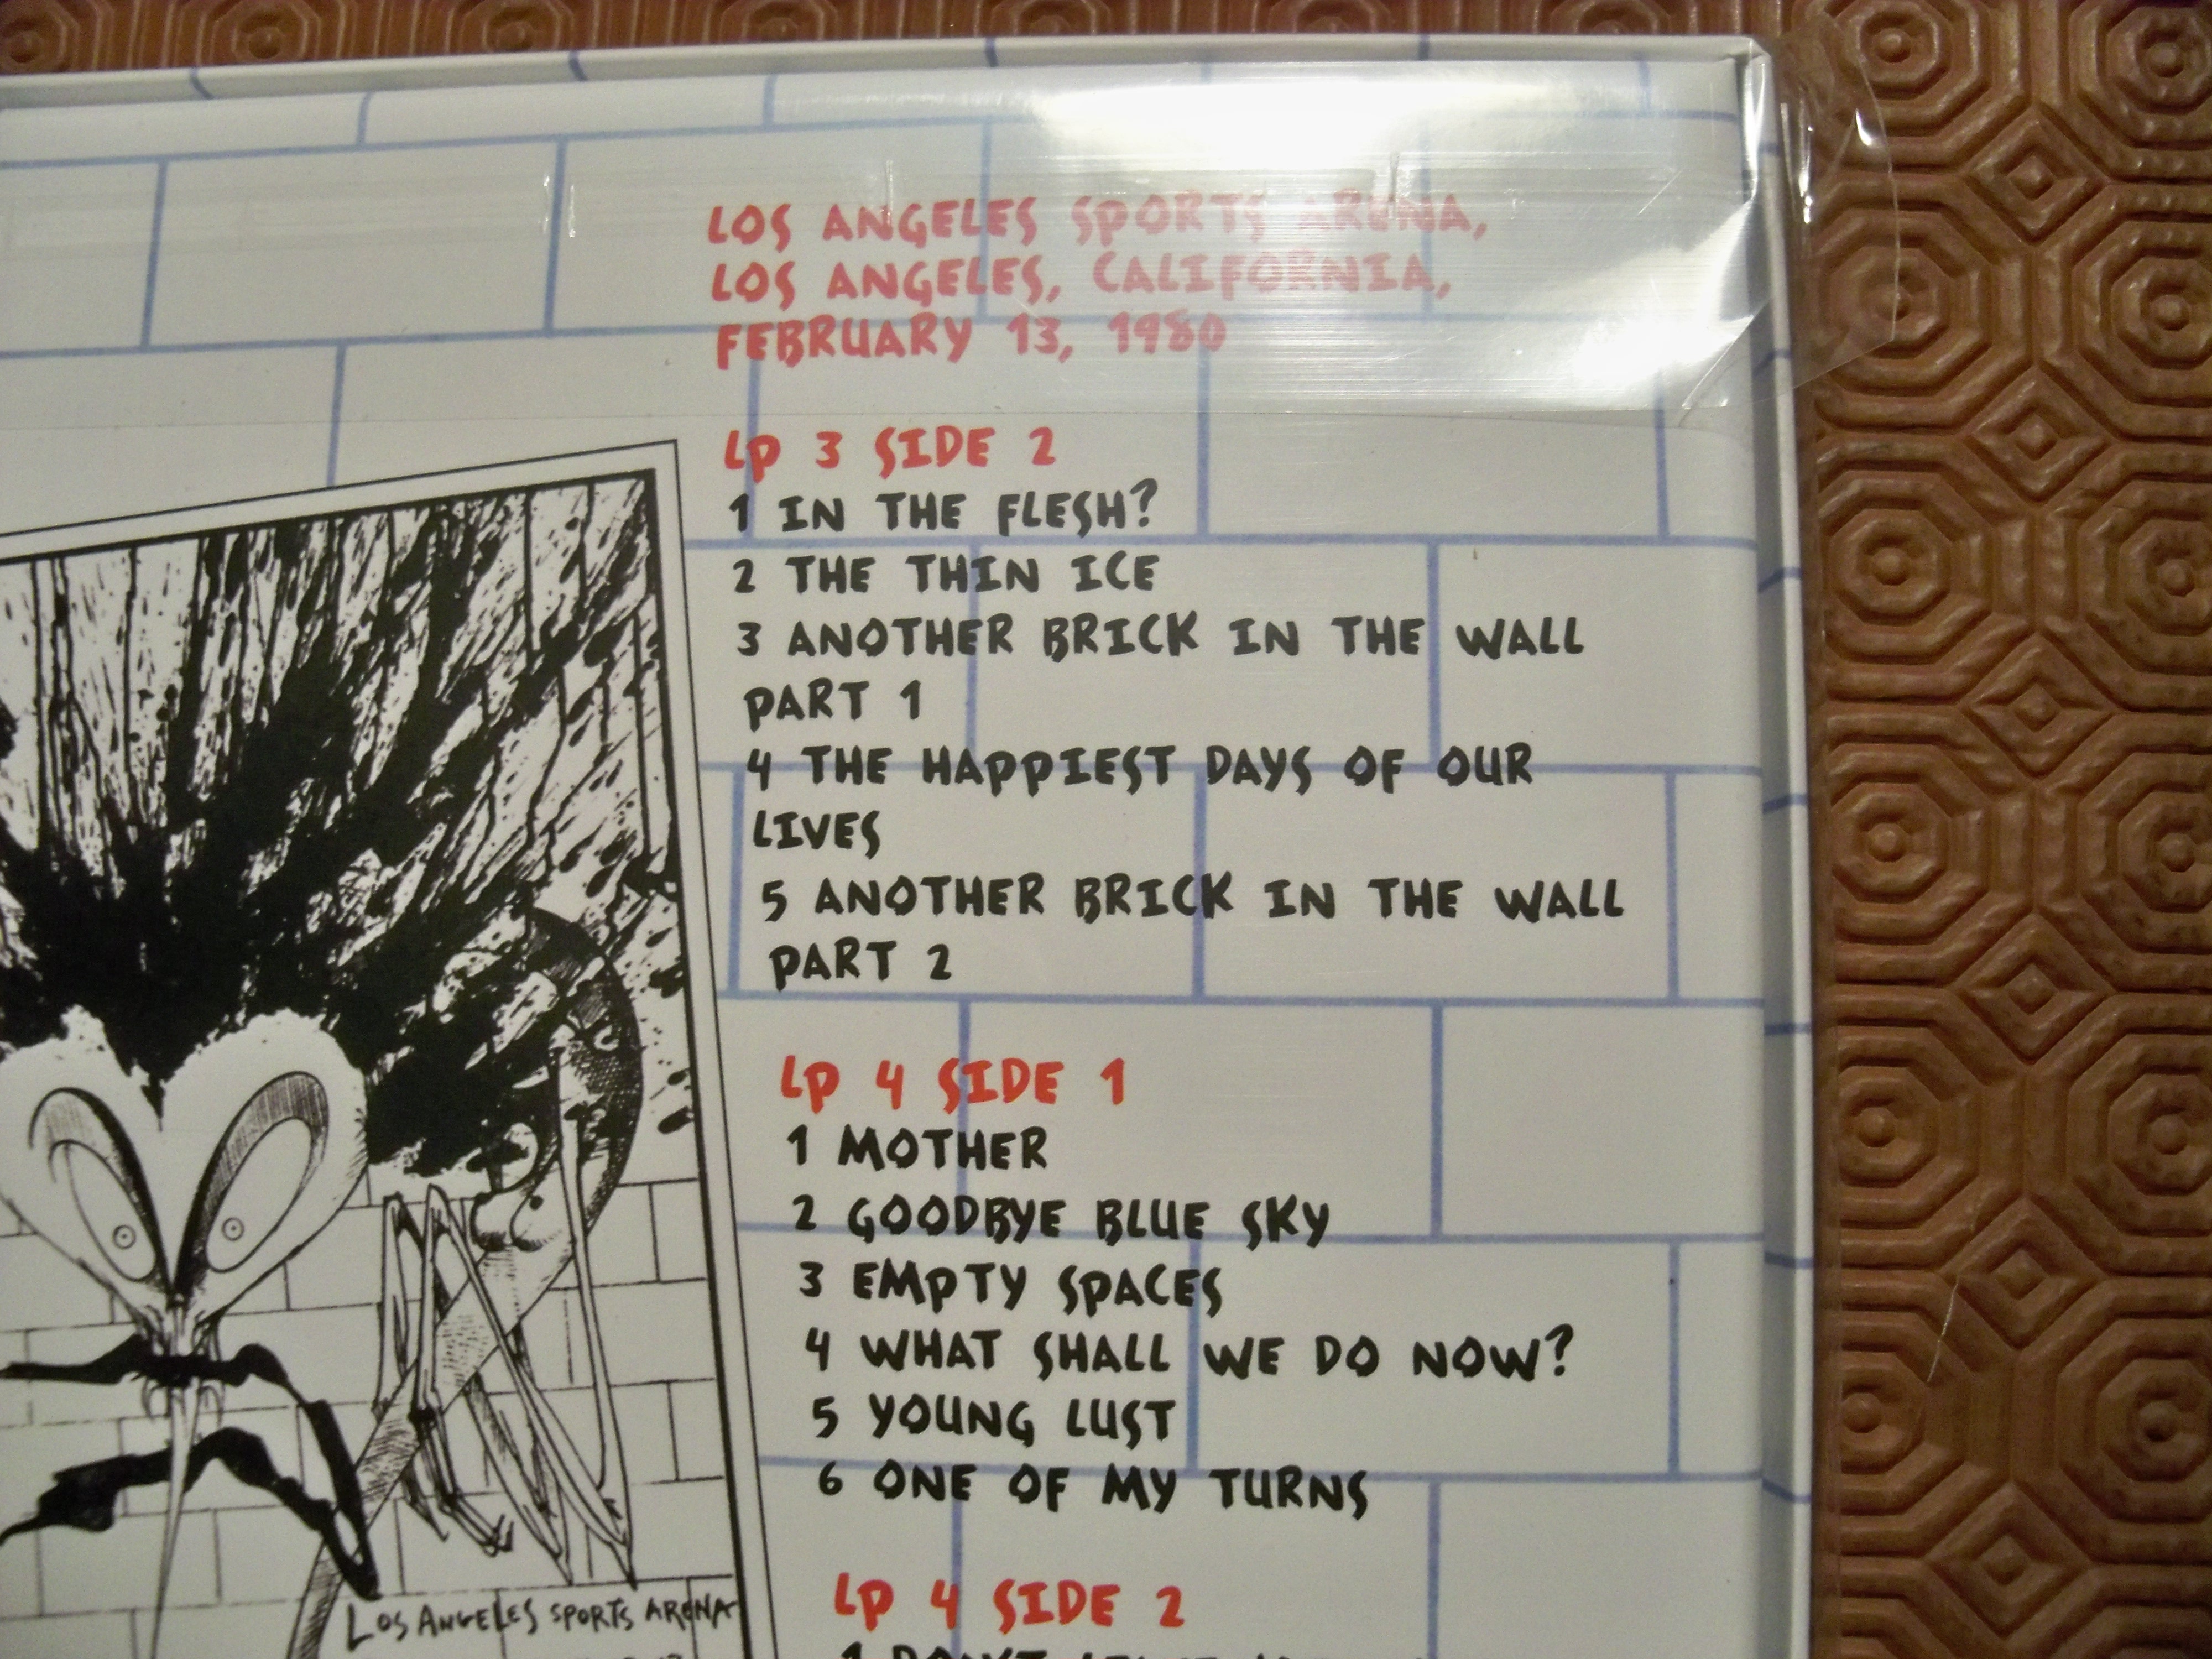 LOS ANGELES SPORTS ARENA,
LOS ANGELES, CALIFORNIA,
FEBRUARY 13, 1980
LP 3 SIDE 2
1 IN THE FLESH?
2 THE THIN ICE
3 ANOTHER BRICK IN THE WALL
PART 1
4 THE HAPPIEST DAYS OF OUR
LIVES
5 ANOTHER BRICK IN THE WALL
PART 2
LP 4 SIDE 1
1 MOTHER
2 GOODBYE BLUE SKY
3 EMPTY SPACES
4 WHAT SHALL WE DO NOW?
5 YOUNG LUST
6 ONE OF MY TURNS
LP 4 SIDE 2
LOS ANGELES SPORTS ARENA